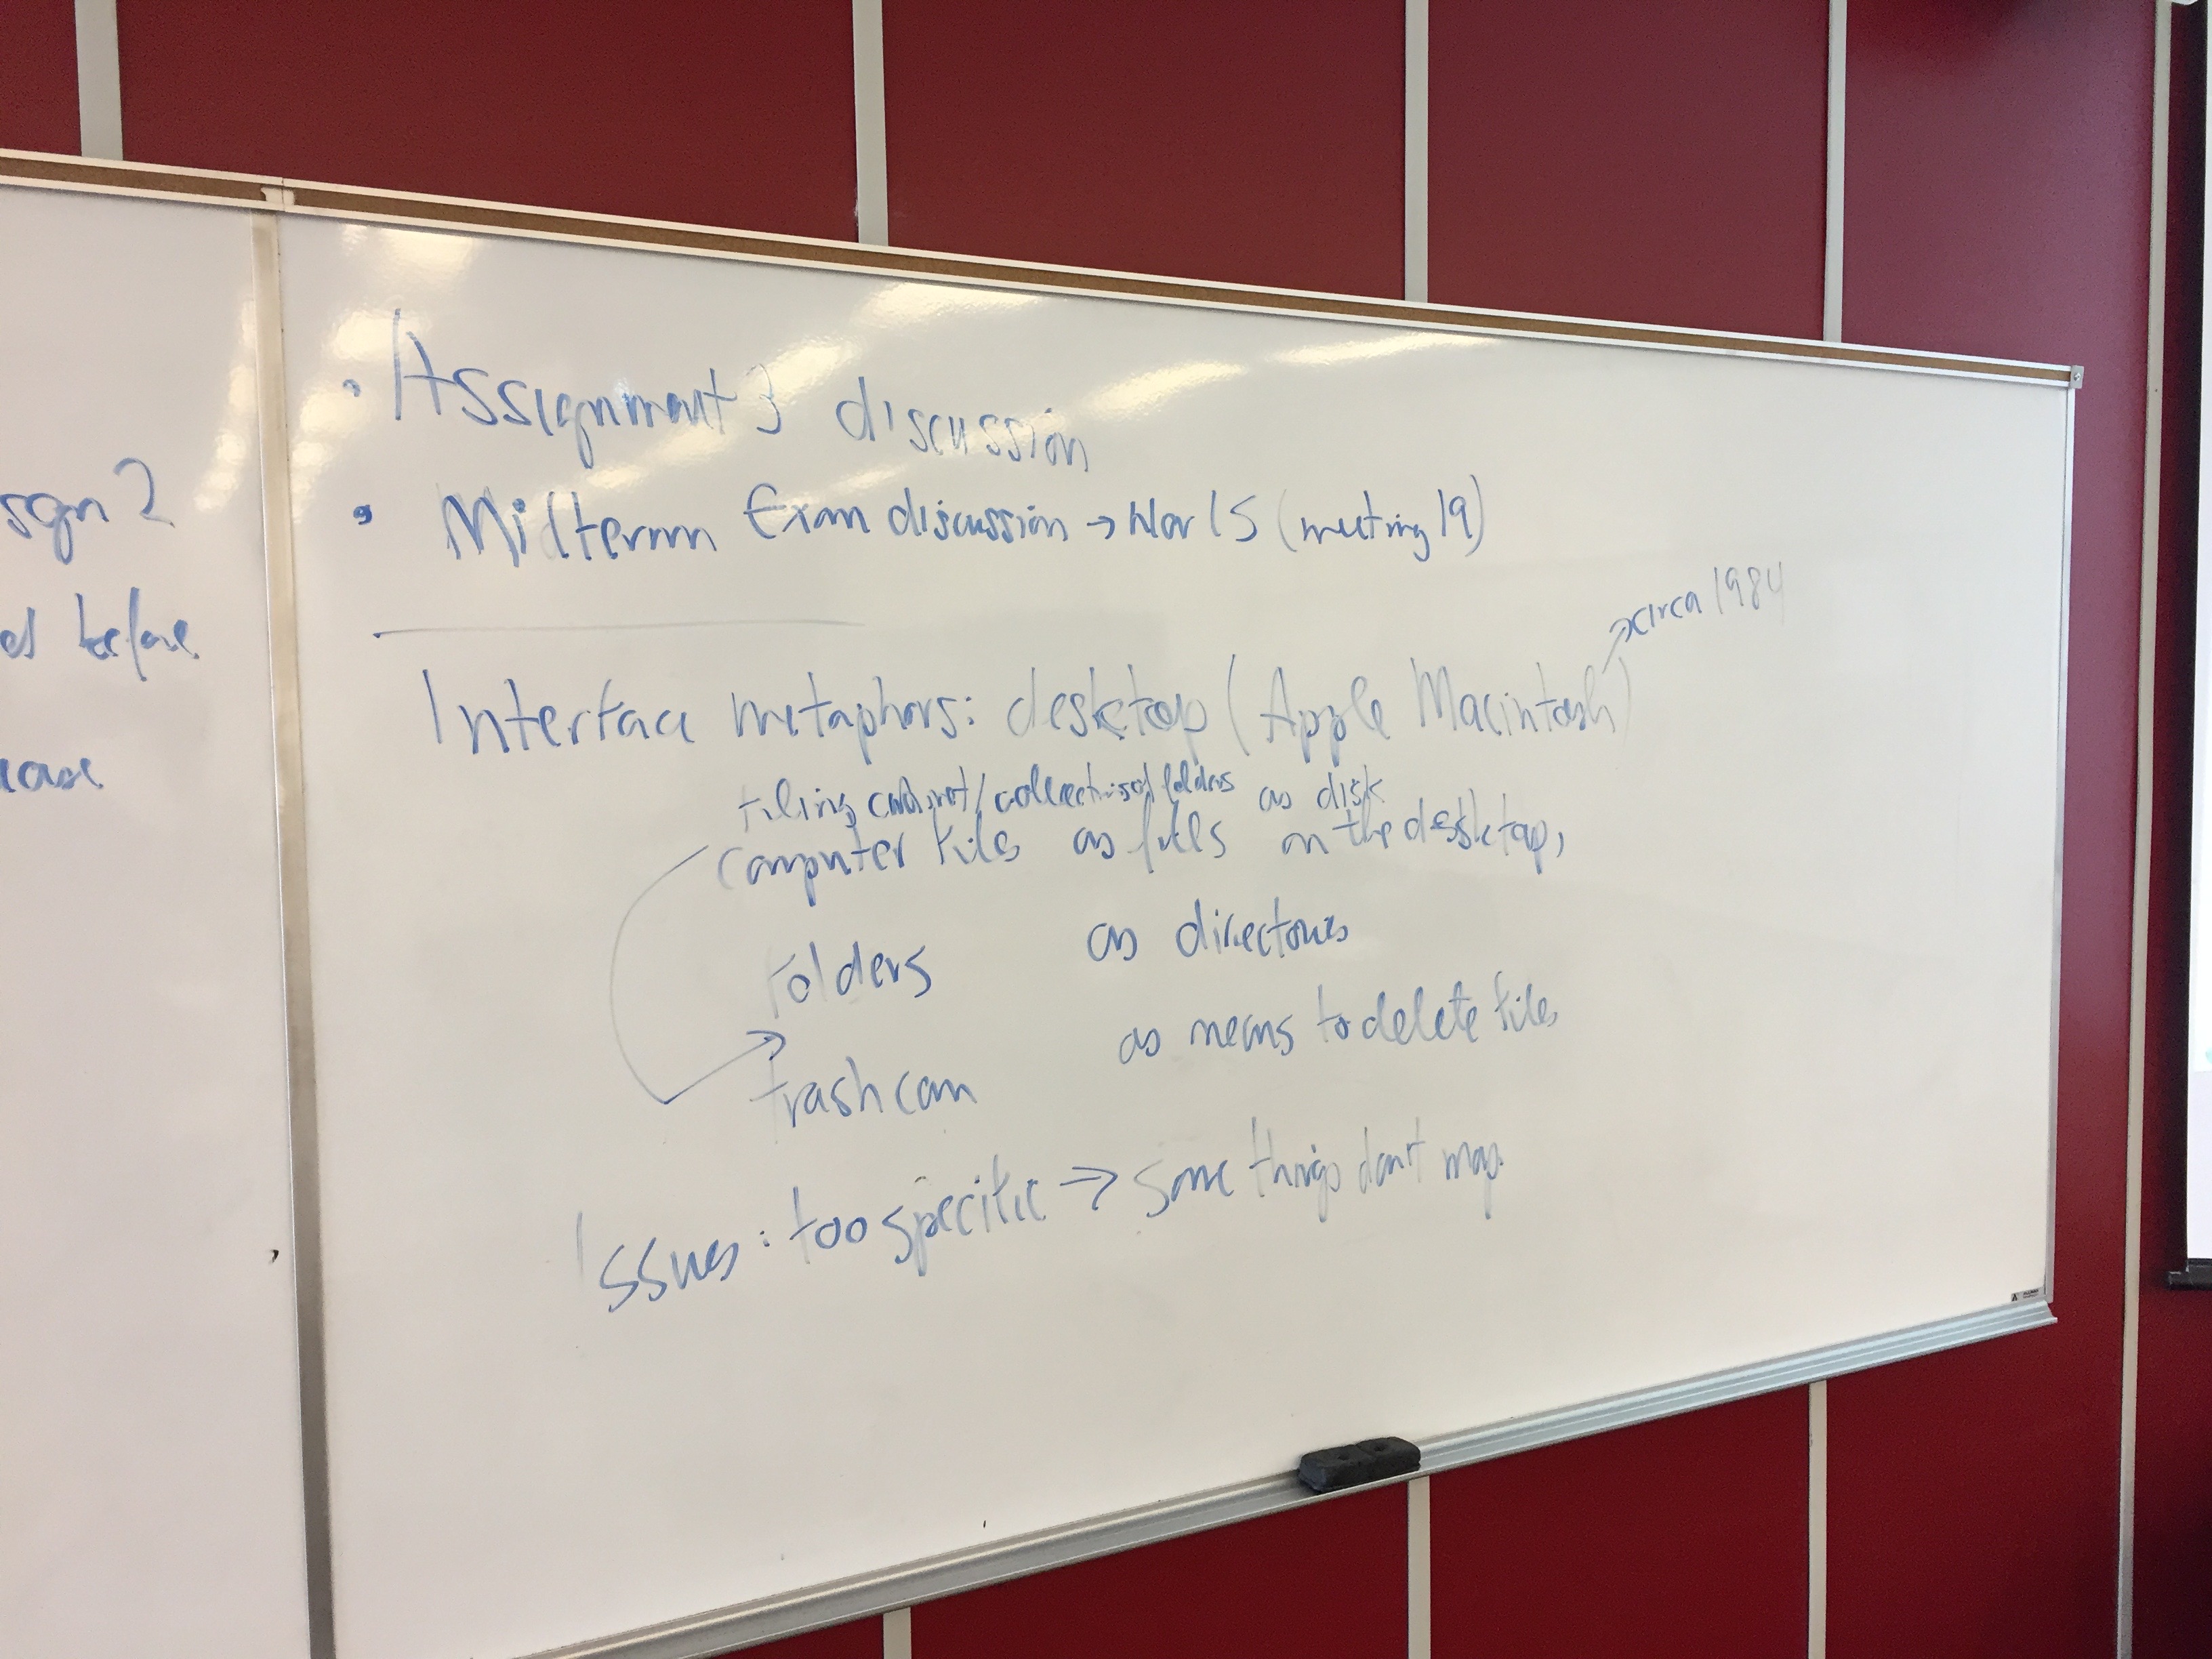 sgn 2
before
• Assignment 3 discussion
• Midterm Exam discussion → Nov 15 (meeting 19)
→ circa 1984
Interface metaphors: desktop (Apple Macintosh)
filing cabinet/collection of folders as disk
computer files as files on the desktop,
folders as directories
trashcan as means to delete files
Issues: too specific → some things don't map